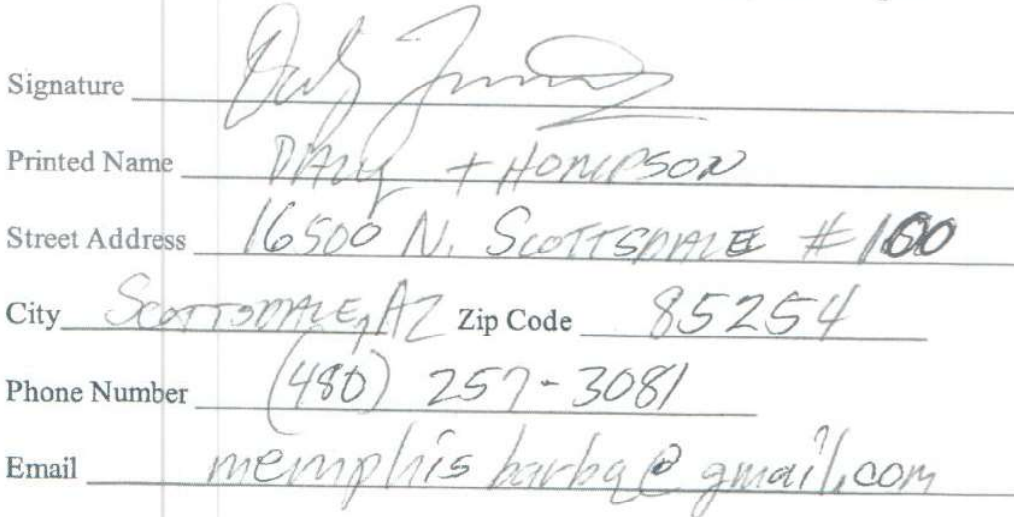 Signature
Printed Name Daly Thompson
Street Address 16500 N. SCOTTSDALE #100
City SCOTTSDALE, AZ Zip Code 85254
Phone Number (480) 257-3081
Email memphisbarba@gmail.com